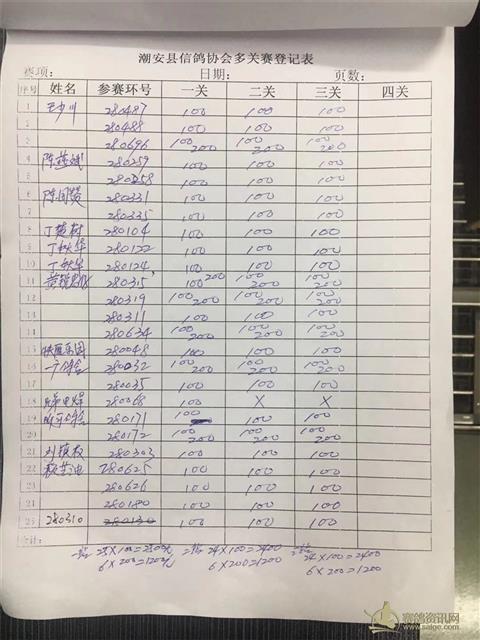 潮安县信鸽协会多关赛登记表
赛项: 日期: 页数:
序号 姓名 参赛环号 一关 二关 三关 四关
1 280487 100 100 100
2 280488 100 100 100
3 280696 100 200 100 200 100 200
4 280259 100 100 100
5 280258 100 100 100
6 280331 100 100 100
7 280335 100 100 100
8 280104 100 100 100
9 丁秋华 280122 100 100 100
10 丁秋华 280124 100 100 100
11 280315 100 200 100 200 100 200
12 280319 100 200 100 200 100 200
13 280311 100 100 100
14 280634 100 200 100 200 100 200
15 280048 100 100 100
16 280032 100 200 100 200 100 200
17 280035 100 100 100
18 280068 100 X X
19 280171 100 100 100
20 280172 100 200 100 200 100 200
21 280303 100 100 100
22 280625 100 100 100
23 280626 100 100 100
24 280180 100 100 100
25 280310 280130 100 100 100
合计:
25×100=2500元 24×100=2400 24×100=2400
6×200=1200元 6×200=1200 6×200=1200
赛鸽资讯网
www.saige.com